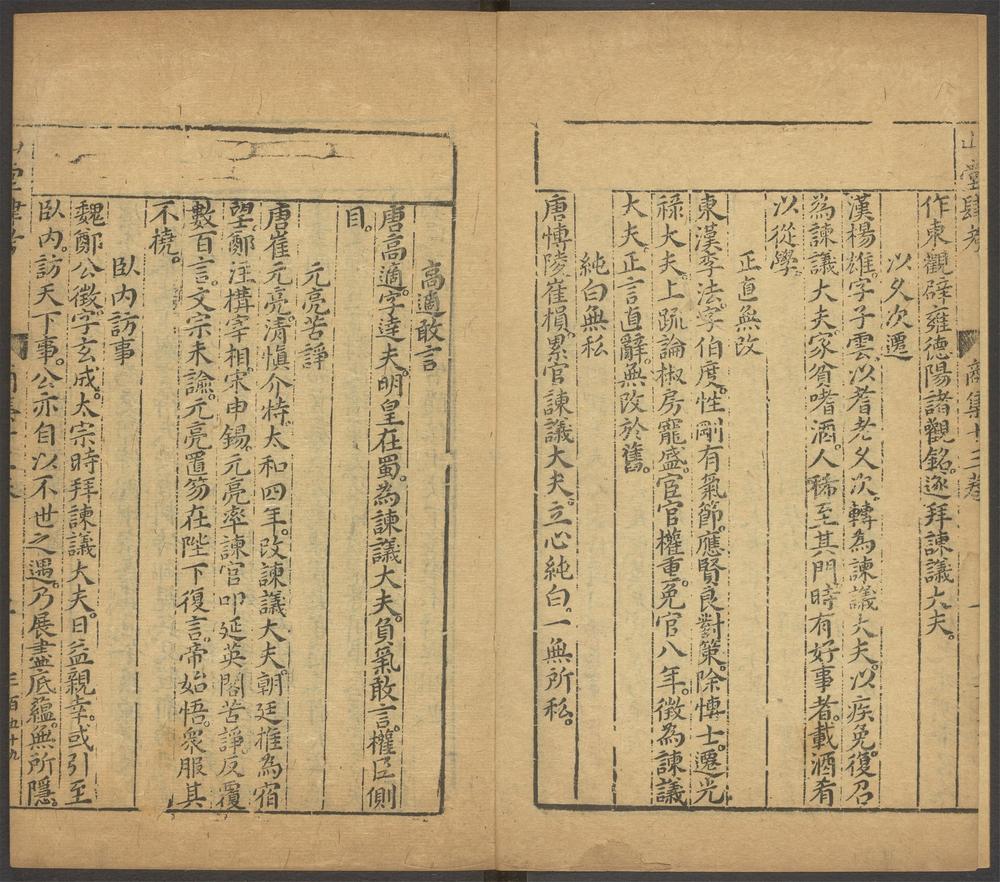 山堂肆考 商集十三卷
作東觀辟雍德陽諸觀銘。遂拜諫議大夫。
以久次遷
漢楊雄。字子雲。以耆老久次。轉為諫議大夫。以疾免。復召
為諫議大夫。家貧嗜酒。人稀至其門。時有好事者。載酒肴
以從學。
正直無改
東漢李法。字伯度。性剛有氣節。應賢良對策。除愽士。遷光
祿大夫。上疏論椒房寵盛。宦官權重。免官八年。徵為諫議
大夫。正言直辭。無改於舊。
純白無私
唐愽陵崔損。累官諫議大夫。立心純白。一無所私。
高適敢言
唐高適。字達夫。明皇在蜀。為諫議大夫。負氣敢言。權臣側
目。
元亮苦諍
唐崔元亮。清慎介特。太和四年。改諫議大夫。朝廷推為宿
望。鄭注構宰相。宋申錫。元亮率諫官叩延英閣苦諍。反覆
數百言。文宗未諭。元亮置笏在陛下復言。帝始悟。衆服其
不橈。
臥內訪事
魏鄭公徵。字玄成。太宗時拜諫議大夫。日益親幸。或引至
臥內。訪天下事。公亦自以不世之遇。乃展盡底蘊。無所隱。
山堂肆考 三百五十九